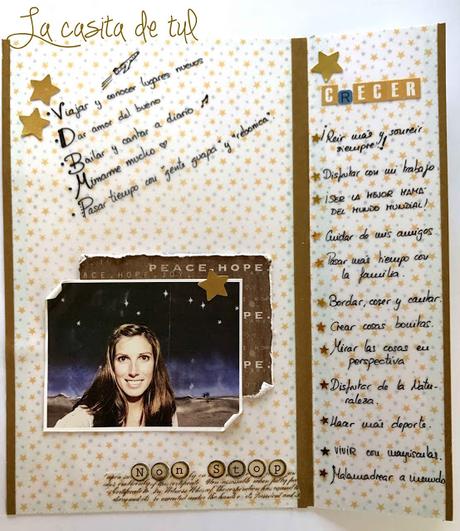 La casita de tul
• Viajar y conocer lugares nuevos
• Dar amor del bueno
• Bailar y cantar a diario
• Mimarme mucho
• Pasar tiempo con "gente guapa" y "rebonica"
CRECER
¡Reir más y sonreir
siempre!
Disfrutar con mi trabajo.
¡SER LA MEJOR MAMÁ
DEL MUNDO MUNDIAL!
Cuidar de mis amigos
Pasar más tiempo con
la familia.
Bordar, coser y cantar.
Crear cosas bonitas.
Mirar las cosas en
perspectiva
Disfrutar de la Natu-
raleza.
Hacer más deporte.
VIVIR con mayúsculas.
Malamadrear a menudo
PEACE.HOPE.
Non Stop